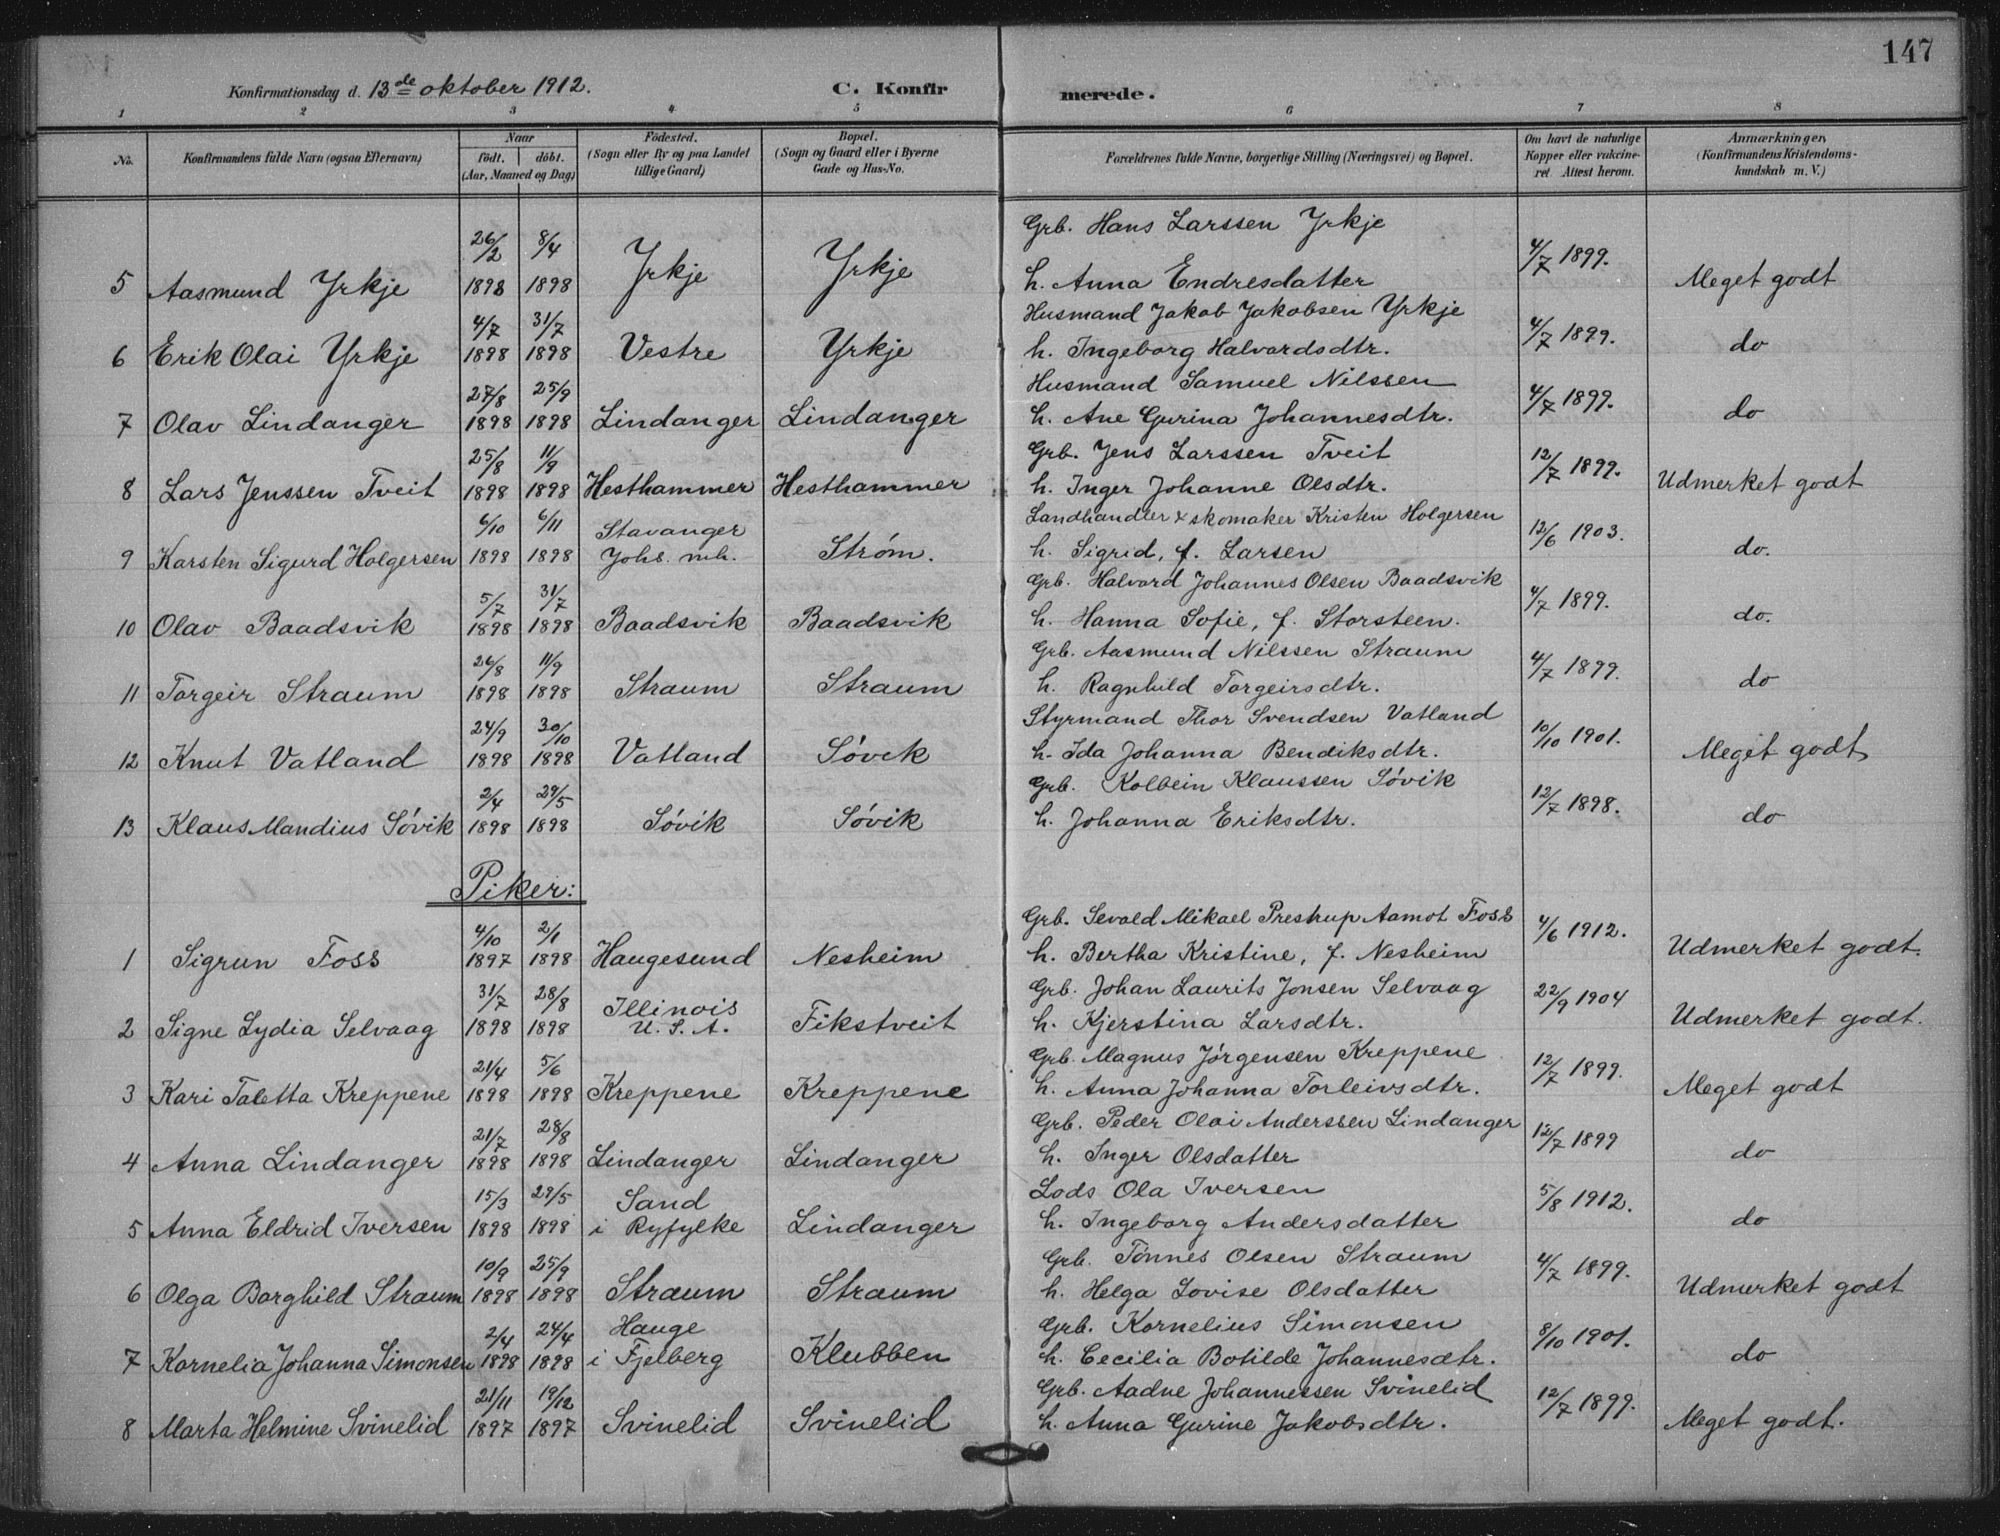 147
Konfirmationsdag d. 13de oktober 1912. C. Konfirmerede.
1 2 3 4 5 6 7 8
No. Konfirmandens fulde Navn (ogsaa Efternavn) Naar födt. döbt. (Aar, Maaned og Dag) Födested. (Sogn eller By og paa Landet tillige Gaard) Bopæl. (Sogn og Gaard eller i Byerne Gade og Hus-No. Forældrenes fulde Navne, borgerlige Stilling (Næringsvei) og Bopæl. Om havt de naturlige Kopper eller vakcineret. Attest herom. Anmærkninger, (Konfirmandens Kristendomskundskab m. V.)
5 Aasmund Yrkje 26/2 1898 8/4 1898 Yrkje Yrkje Grb. Hans Larssen Yrkje h. Anna Endresdatter 4/7 1899. Meget godt
6 Erik Olai Yrkje 4/7 1898 31/7 1898 Vestre Yrkje Husmand Jakob Jakobsen Yrkje h. Ingeborg Halvardsdtr. 4/7 1899. do
7 Olav Lindanger 27/8 1898 25/9 1898 Lindanger Lindanger Husmand Samuel Nilssen h. Ane Gurina Johannesdtr. 4/7 1899. do
8 Lars Jenssen Tveit 25/8 1898 11/9 1898 Hesthammer Hesthammer Grb. Jens Larssen Tveit h. Inger Johanne Olsdtr. 12/7 1899. Udmerket godt
9 Karsten Sigurd Holgersen 6/10 1898 6/11 1898 Stavanger Johs. mh. Strøm. Landhandler & skomaker Kristen Holgersen h. Sigrid, f. Larsen 12/6 1903. do.
10 Olav Baadsvik 5/7 1898 31/7 1898 Baadsvik Baadsvik Grb. Halvard Johannes Olsen Baadsvik h. Hanna Sofie, f. Storsteen. 4/7 1899. do.
11 Torgeir Straum 26/8 1898 11/9 1898 Straum Straum Grb. Aasmund Nilssen Straum h. Ragnhild Torgeirsdtr. 4/7 1899. do
12 Knut Vatland 24/9 1898 30/10 1898 Vatland Søvik Styrmand Thor Svendsen Vatland h. Ida Johanna Bendiksdtr. 10/10 1901. Meget godt
13 Klaus Mandius Søvik 2/4 1898 29/5 1898 Søvik Søvik Grb. Kolbein Klaussen Søvik h. Johanna Eriksdtr. 12/7 1898. do
Piker:
1 Sigrun Foss 4/10 1897 2/1 1898 Haugesund Nesheim Grb. Sevald Mikael Prestrup Aamot Foss h. Bertha Kristine, f. Nesheim 4/6 1912. Udmerket godt.
2 Signe Lydia Selvaag 31/7 1898 28/8 1898 Illinois U. S. A. Fikstveit Grb. Johan Laurits Jonsen Selvaag h. Kjerstina Larsdtr. 22/9 1904 Udmerket godt.
3 Kari Taletta Kreppene 21/4 1898 5/6 1898 Kreppene Kreppene Grb. Magnus Jørgensen Kreppene h. Anna Johanna Torleivsdtr. 12/7 1899. Meget godt
4 Anna Lindanger 21/7 1898 28/8 1898 Lindanger Lindanger Grb. Peder Olai Anderssen Lindanger h. Inger Olsdatter 12/7 1899 do
5 Anna Eldrid Iversen 15/3 1898 29/5 1898 Sand i Ryfylke Lindanger Lods Ola Iversen h. Ingeborg Andersdatter 5/8 1912. do
6 Olga Borghild Straum 10/9 1898 25/9 1898 Straum Straum Grb. Tønnes Olsen Straum h. Helga Lovise Olsdatter 4/7 1899. Udmerket godt
7 Kornelia Johanna Simonsen 2/4 1898 24/4 1898 Hauge i Fjelberg Klubben Grb. Kornelius Simonsen h. Cecilia Botilde Johannesdtr. 8/10 1901. do
8 Marta Helmine Svinelid 21/11 1897 19/12 1897 Svinelid Svinelid Grb. Aadne Johannessen Svinelid h. Anna Gurine Jakobsdtr. 12/7 1899. Meget godt.